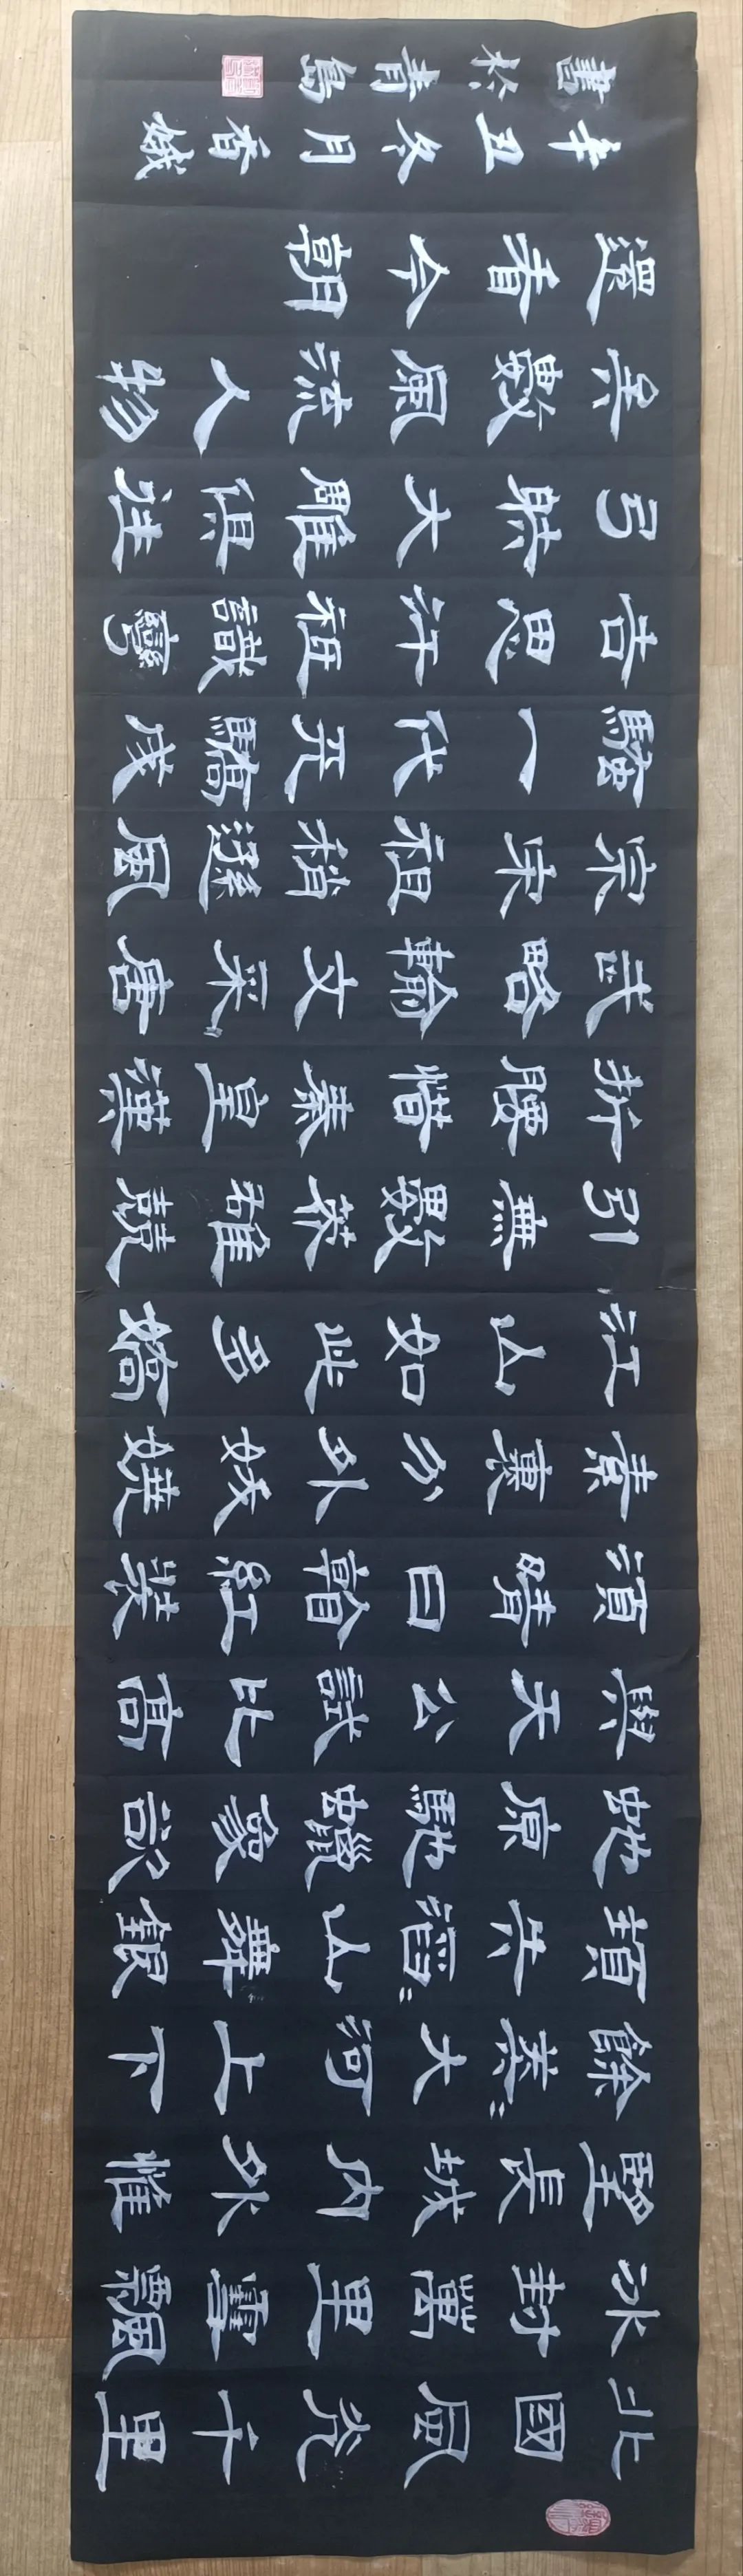 北國風光千里
冰封萬里雪飄
望長城內外惟
餘莽〻大河上下
頓失滔〻山舞銀
蛇原馳蠟象欲
與天公試比高
須晴日看紅裝
素裹分外妖嬈
江山如此多嬌
引無數英雄競
折腰惜秦皇漢
武略輸文采唐
宗宋祖稍遜風
騷一代天驕成
吉思汗祗識彎
弓射大雕俱往
矣數風流人物
還看今朝
辛丑冬月香娥
書於青島